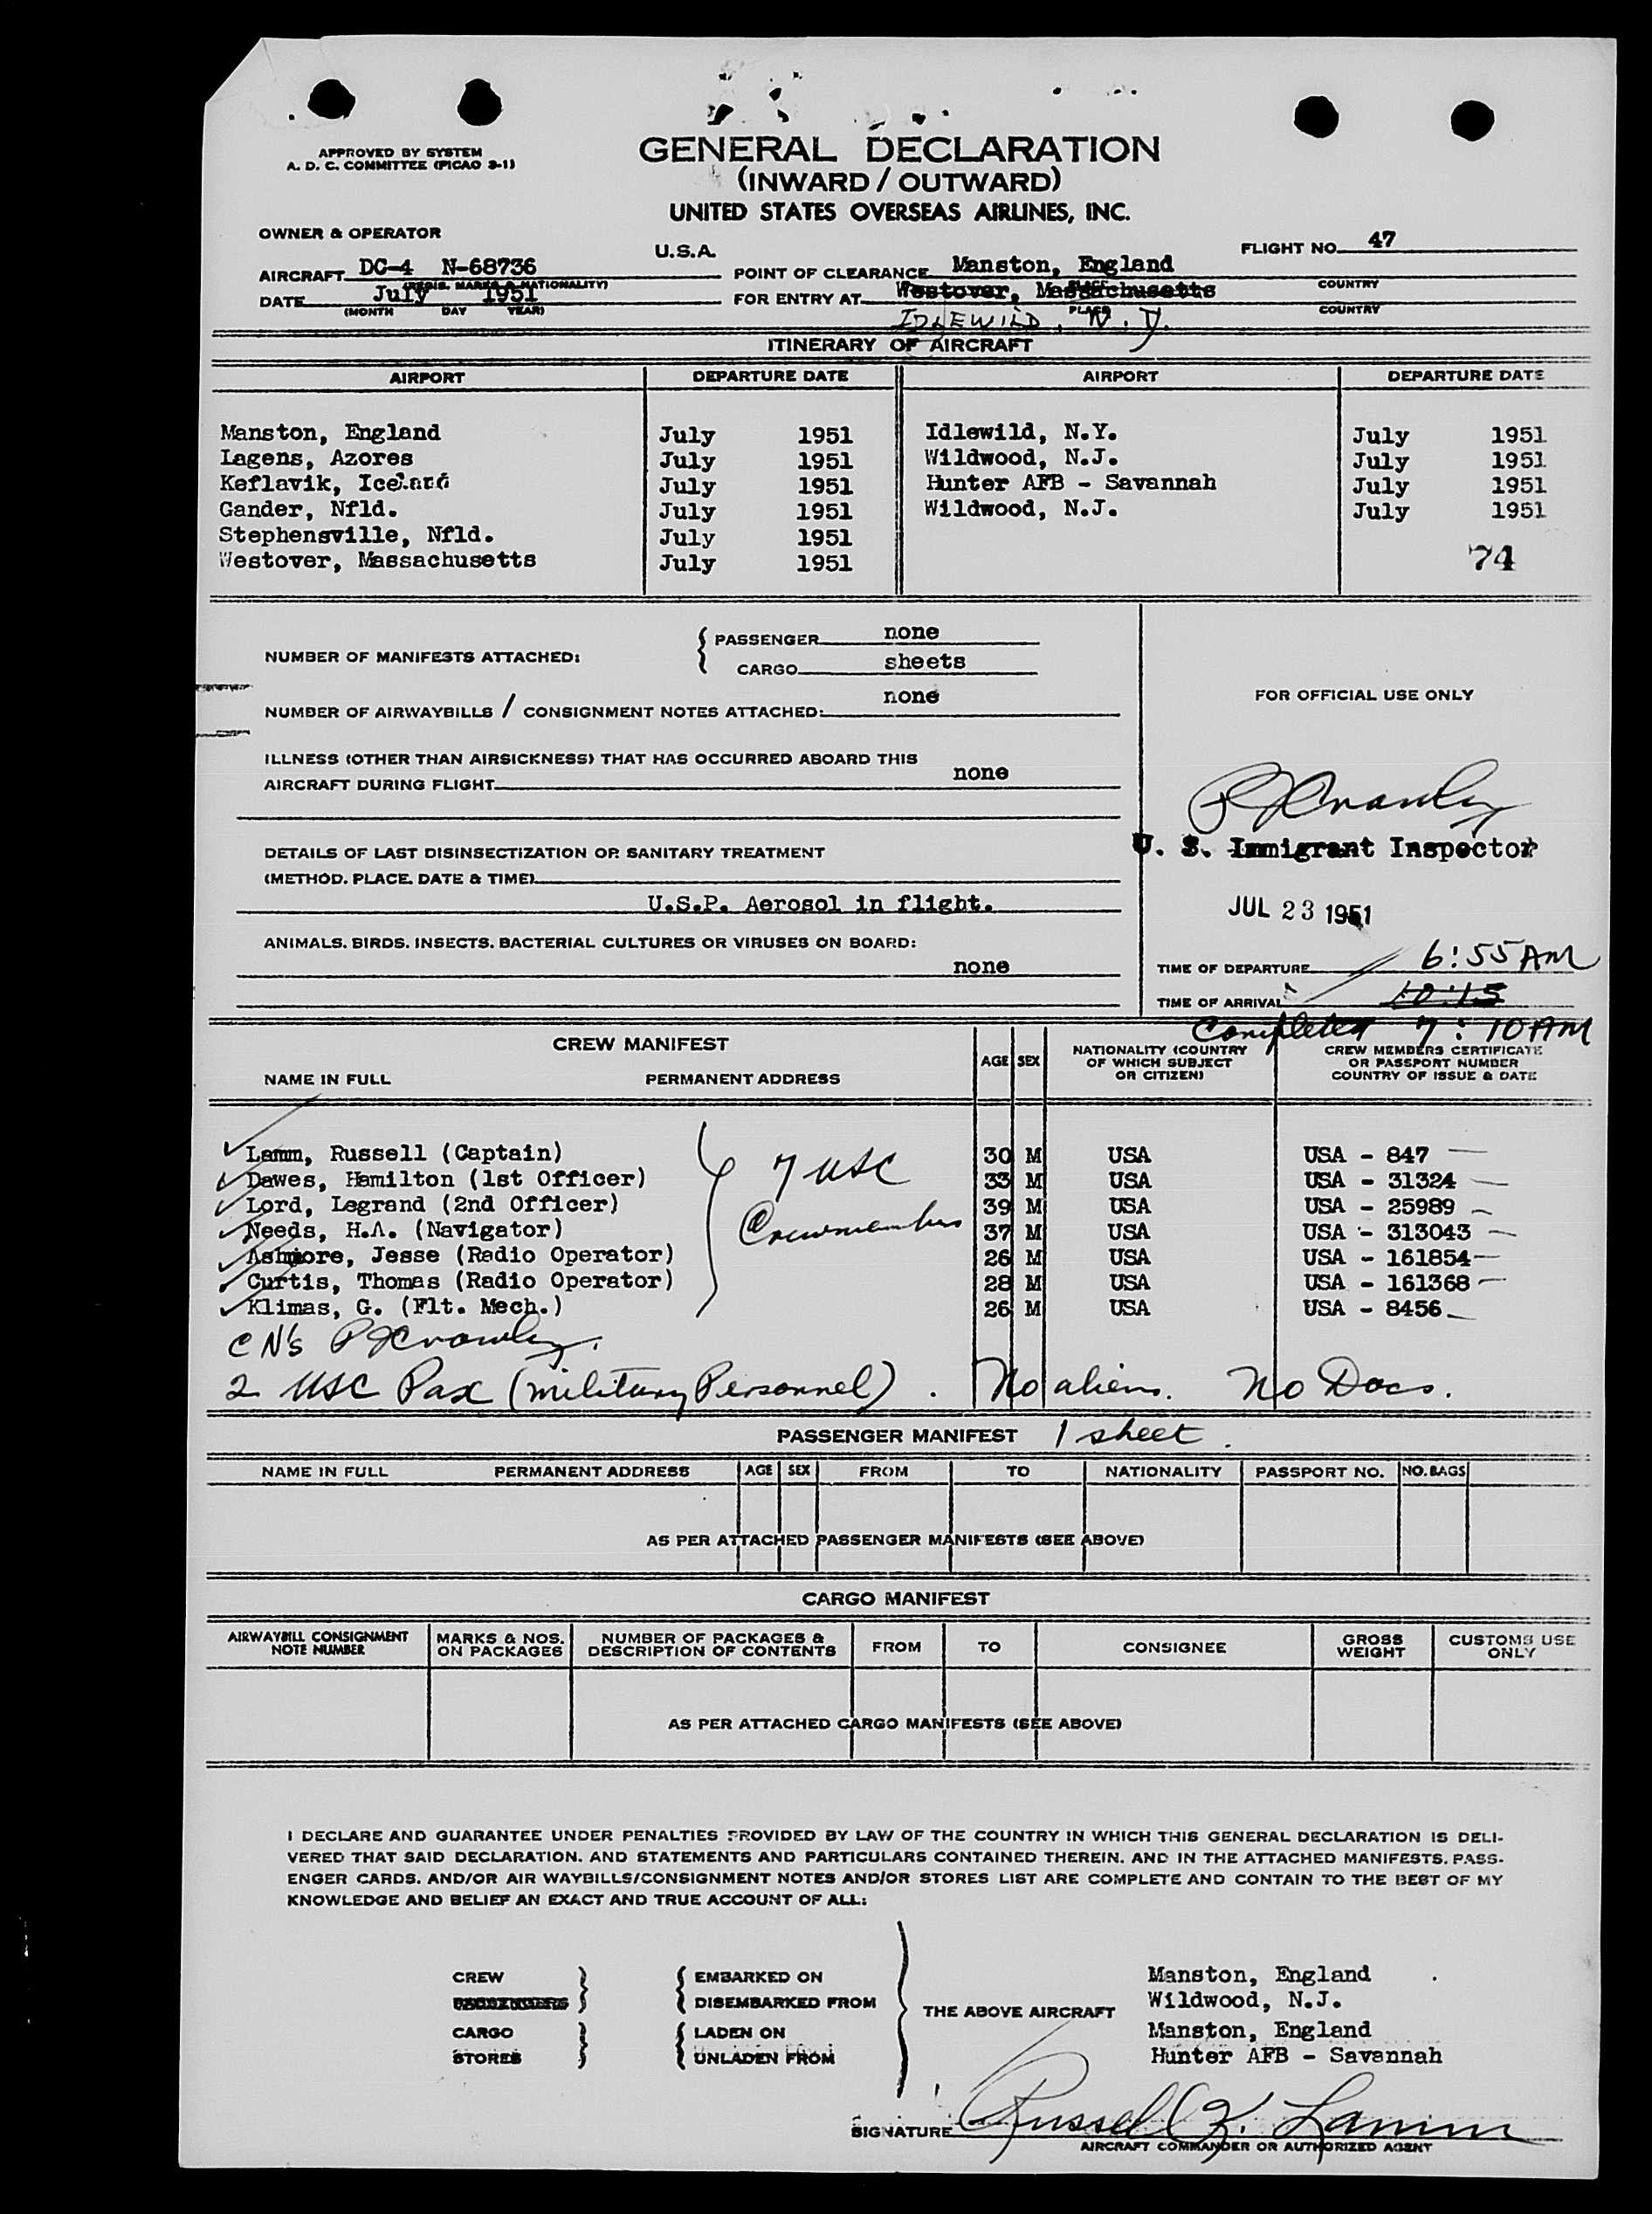 APPROVED BY SYSTEM
A. D. C. COMMITTEE (PICAO 3-1)
GENERAL DECLARATION
(INWARD / OUTWARD)
UNITED STATES OVERSEAS AIRLINES, INC.
OWNER & OPERATOR
U.S.A.
FLIGHT NO. 47
AIRCRAFT DC-4 N-68736
(REGIS. MARKS & NATIONALITY)
POINT OF CLEARANCE Manston, England
COUNTRY
DATE July 1951
(MONTH DAY YEAR)
FOR ENTRY AT Westover, Massachusetts
PLACE
COUNTRY
IDLEWILD, N.Y.
ITINERARY OF AIRCRAFT
AIRPORT DEPARTURE DATE AIRPORT DEPARTURE DATE
Manston, England July 1951 Idlewild, N.Y. July 1951
Lagens, Azores July 1951 Wildwood, N.J. July 1951
Keflavik, Iceland July 1951 Hunter AFB - Savannah July 1951
Gander, Nfld. July 1951 Wildwood, N.J. July 1951
Stephensville, Nfld. July 1951
Westover, Massachusetts July 1951
74
NUMBER OF MANIFESTS ATTACHED:
PASSENGER none
CARGO sheets
NUMBER OF AIRWAYBILLS / CONSIGNMENT NOTES ATTACHED: none
FOR OFFICIAL USE ONLY
ILLNESS (OTHER THAN AIRSICKNESS) THAT HAS OCCURRED ABOARD THIS
AIRCRAFT DURING FLIGHT none
PJCrowley
U. S. Immigrant Inspector
DETAILS OF LAST DISINSECTIZATION OR SANITARY TREATMENT
(METHOD. PLACE. DATE & TIME)
U.S.P. Aerosol in flight.
JUL 23 1951
ANIMALS. BIRDS. INSECTS. BACTERIAL CULTURES OR VIRUSES ON BOARD:
none
TIME OF DEPARTURE 6:55 AM
TIME OF ARRIVAL 10:15
Completed 7:10 AM
CREW MANIFEST
NAME IN FULL PERMANENT ADDRESS
AGE SEX
NATIONALITY (COUNTRY
OF WHICH SUBJECT
OR CITIZEN)
CREW MEMBERS CERTIFICATE
OR PASSPORT NUMBER
COUNTRY OF ISSUE & DATE
Lamm, Russell (Captain) 30 M USA USA - 847
Dawes, Hamilton (1st Officer) 33 M USA USA - 31324
Lord, Legrand (2nd Officer) 39 M USA USA - 25989
Needs, H.A. (Navigator) 37 M USA USA - 313043
Ashmore, Jesse (Radio Operator) 26 M USA USA - 161854
Curtis, Thomas (Radio Operator) 28 M USA USA - 161368
Klimas, G. (Flt. Mech.) 26 M USA USA - 8456
7 USC
Crewmembers
CN's PJCrowley.
2 USC Pax (military Personnel). No aliens. No Docs.
PASSENGER MANIFEST 1 sheet.
NAME IN FULL PERMANENT ADDRESS AGE SEX FROM TO NATIONALITY PASSPORT NO. NO. BAGS
AS PER ATTACHED PASSENGER MANIFESTS (SEE ABOVE)
CARGO MANIFEST
AIRWAYBILL CONSIGNMENT
NOTE NUMBER
MARKS & NOS.
ON PACKAGES
NUMBER OF PACKAGES &
DESCRIPTION OF CONTENTS
FROM TO CONSIGNEE
GROSS
WEIGHT
CUSTOMS USE
ONLY
AS PER ATTACHED CARGO MANIFESTS (SEE ABOVE)
I DECLARE AND GUARANTEE UNDER PENALTIES PROVIDED BY LAW OF THE COUNTRY IN WHICH THIS GENERAL DECLARATION IS DELI-
VERED THAT SAID DECLARATION. AND STATEMENTS AND PARTICULARS CONTAINED THEREIN. AND IN THE ATTACHED MANIFESTS. PASS-
ENGER CARDS. AND/OR AIR WAYBILLS/CONSIGNMENT NOTES AND/OR STORES LIST ARE COMPLETE AND CONTAIN TO THE BEST OF MY
KNOWLEDGE AND BELIEF AN EXACT AND TRUE ACCOUNT OF ALL:
CREW EMBARKED ON Manston, England
PASSENGERS DISEMBARKED FROM Wildwood, N.J.
THE ABOVE AIRCRAFT
CARGO LADEN ON Manston, England
STORES UNLADEN FROM Hunter AFB - Savannah
SIGNATURE Russell Z. Lamm
AIRCRAFT COMMANDER OR AUTHORIZED AGENT